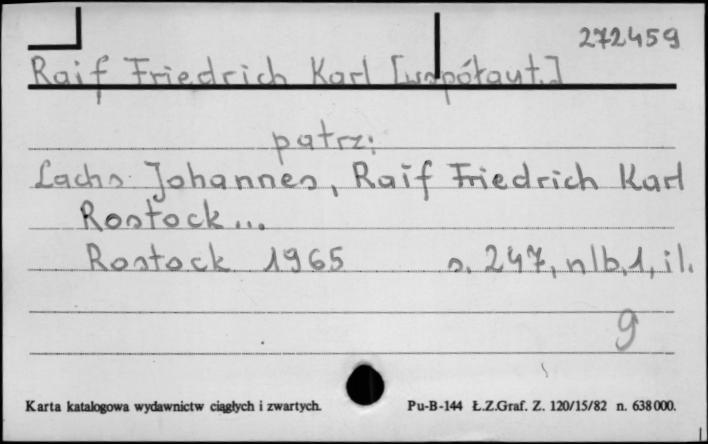 272459
Raif Friedrich Karl [współaut.]
patrz:
Lachs Johannes, Raif Friedrich Karl
Rostock...
Rostock 1965 s. 247, nlb. 1, il.
g
Karta katalogowa wydawnictw ciągłych i zwartych. Pu-B-144 Ł.Z.Graf. Z. 120/15/82 n. 638000.